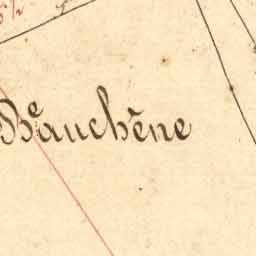 Beauchêne